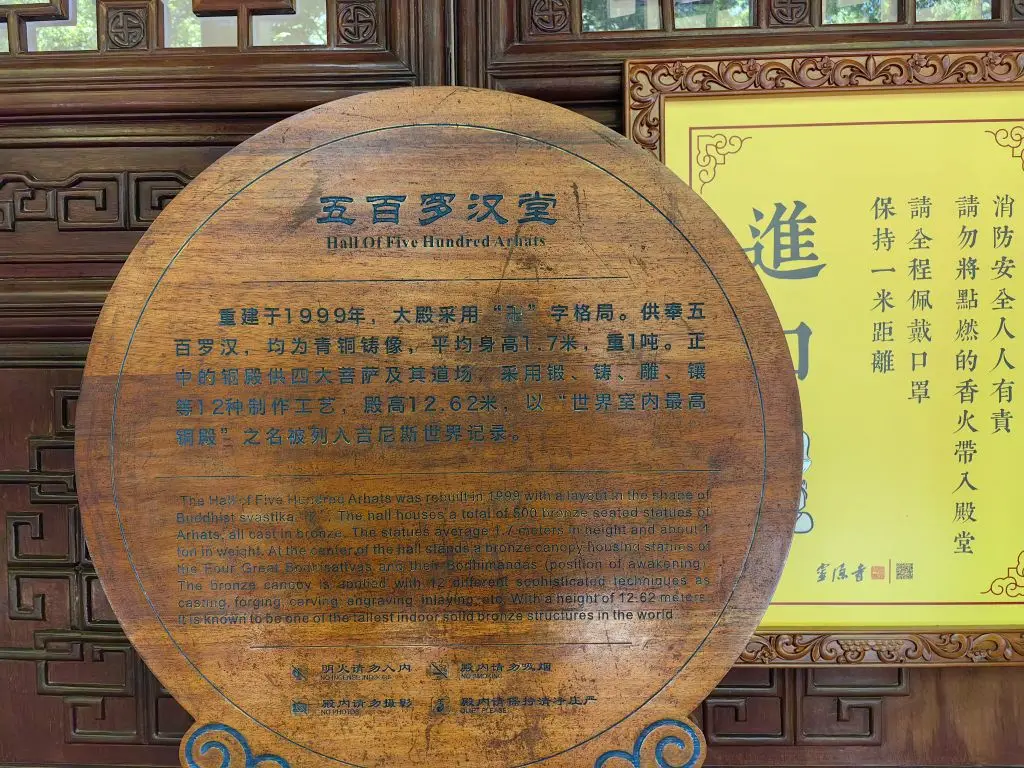 五百罗汉堂
Hall Of Five Hundred Arhats
重建于1999年，大殿采用“卍”字格局。供奉五
百罗汉，均为青铜铸像，平均身高1.7米，重1吨。正
中的铜殿供四大菩萨及其道场，采用锻、铸、雕、镶
等12种制作工艺，殿高12.62米，以“世界室内最高
铜殿”之名被列入吉尼斯世界记录。
The Hall of Five Hundred Arhats was rebuilt in 1999 with a layout in the shape of
Buddhist svastika "卍". The hall houses a total of 500 bronze seated statues of
Arhats, all cast in bronze. The statues average 1.7 meters in height and about 1
ton in weight. At the center of the hall stands a bronze canopy housing statues of
the Four Great Bodhisattvas and their Bodhimandas (position of awakening).
The bronze canopy is applied with 12 different sophisticated techniques as
casting, forging, carving, engraving, inlaying, etc. With a height of 12.62 meters,
it is known to be one of the tallest indoor solid bronze structures in the world.
明火请勿入内
NO INCENSE INDOORS
殿内请勿吸烟
NO SMOKING
殿内请勿摄影
NO PHOTOS
殿内请保持清净庄严
QUIET PLEASE
消防安全人人有責
請勿將點燃的香火帶入殿堂
請全程佩戴口罩
保持一米距離
進